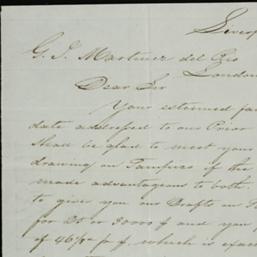 Liverp
G. J. Martinez del Rio
London
Dear Sir
Your esteemed fa
date addressed to our Prior
shall be glad to meet your
drawing on Tampico if the
made advantageous to both.
to give you our Drafts on
for 25 or 30000 $ and you
of 46 p $, which is exac